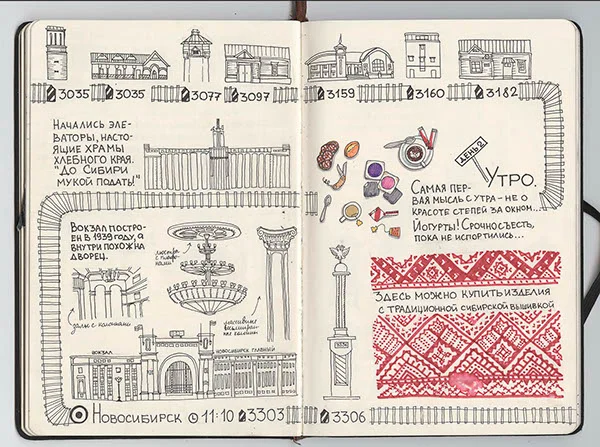 3035 3035 3077 3097
НАЧАЛИСЬ ЭЛЕ-
ВАТОРЫ, НАСТО-
ЯЩИЕ ХРАМЫ
ХЛЕБНОГО КРАЯ.
"ДО СИБИРИ
МУКОЙ ПОДАТЬ!"
ВОКЗАЛ ПОСТРО-
ЕН В 1939 ГОДУ, А
ВНУТРИ ПОХОЖ НА
ДВОРЕЦ.
люстра
с плафо-
нами
залы с колоннами
колонны
ВОКЗАЛ
НОВОСИБИРСК ГЛАВНЫЙ
НОВОСИБИРСК 11:10 3303
3159 3160 3182
ДЕНЬ 2
УТРО.
САМАЯ ПЕР-
ВАЯ МЫСЛЬ С УТРА - НЕ О
КРАСОТЕ СТЕПЕЙ ЗА ОКНОМ...
ЙОГУРТЫ! СРОЧНО СЪЕСТЬ,
ПОКА НЕ ИСПОРТИЛИСЬ...
ЗДЕСЬ МОЖНО КУПИТЬ ИЗДЕЛИЯ
С ТРАДИЦИОННОЙ СИБИРСКОЙ ВЫШИВКОЙ
3306